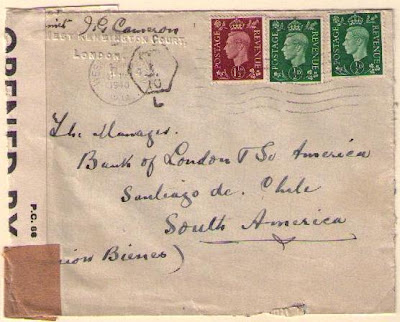 J.P. Cameron
KENSINGTON COURT,
LONDON
1940
L
POSTAGE REVENUE
1½D
POSTAGE REVENUE
½D
POSTAGE REVENUE
½D
OPENED BY
P.C. 66
The Manager.
Bank of London & So America
Santiago de. Chile
South America
Bienes)